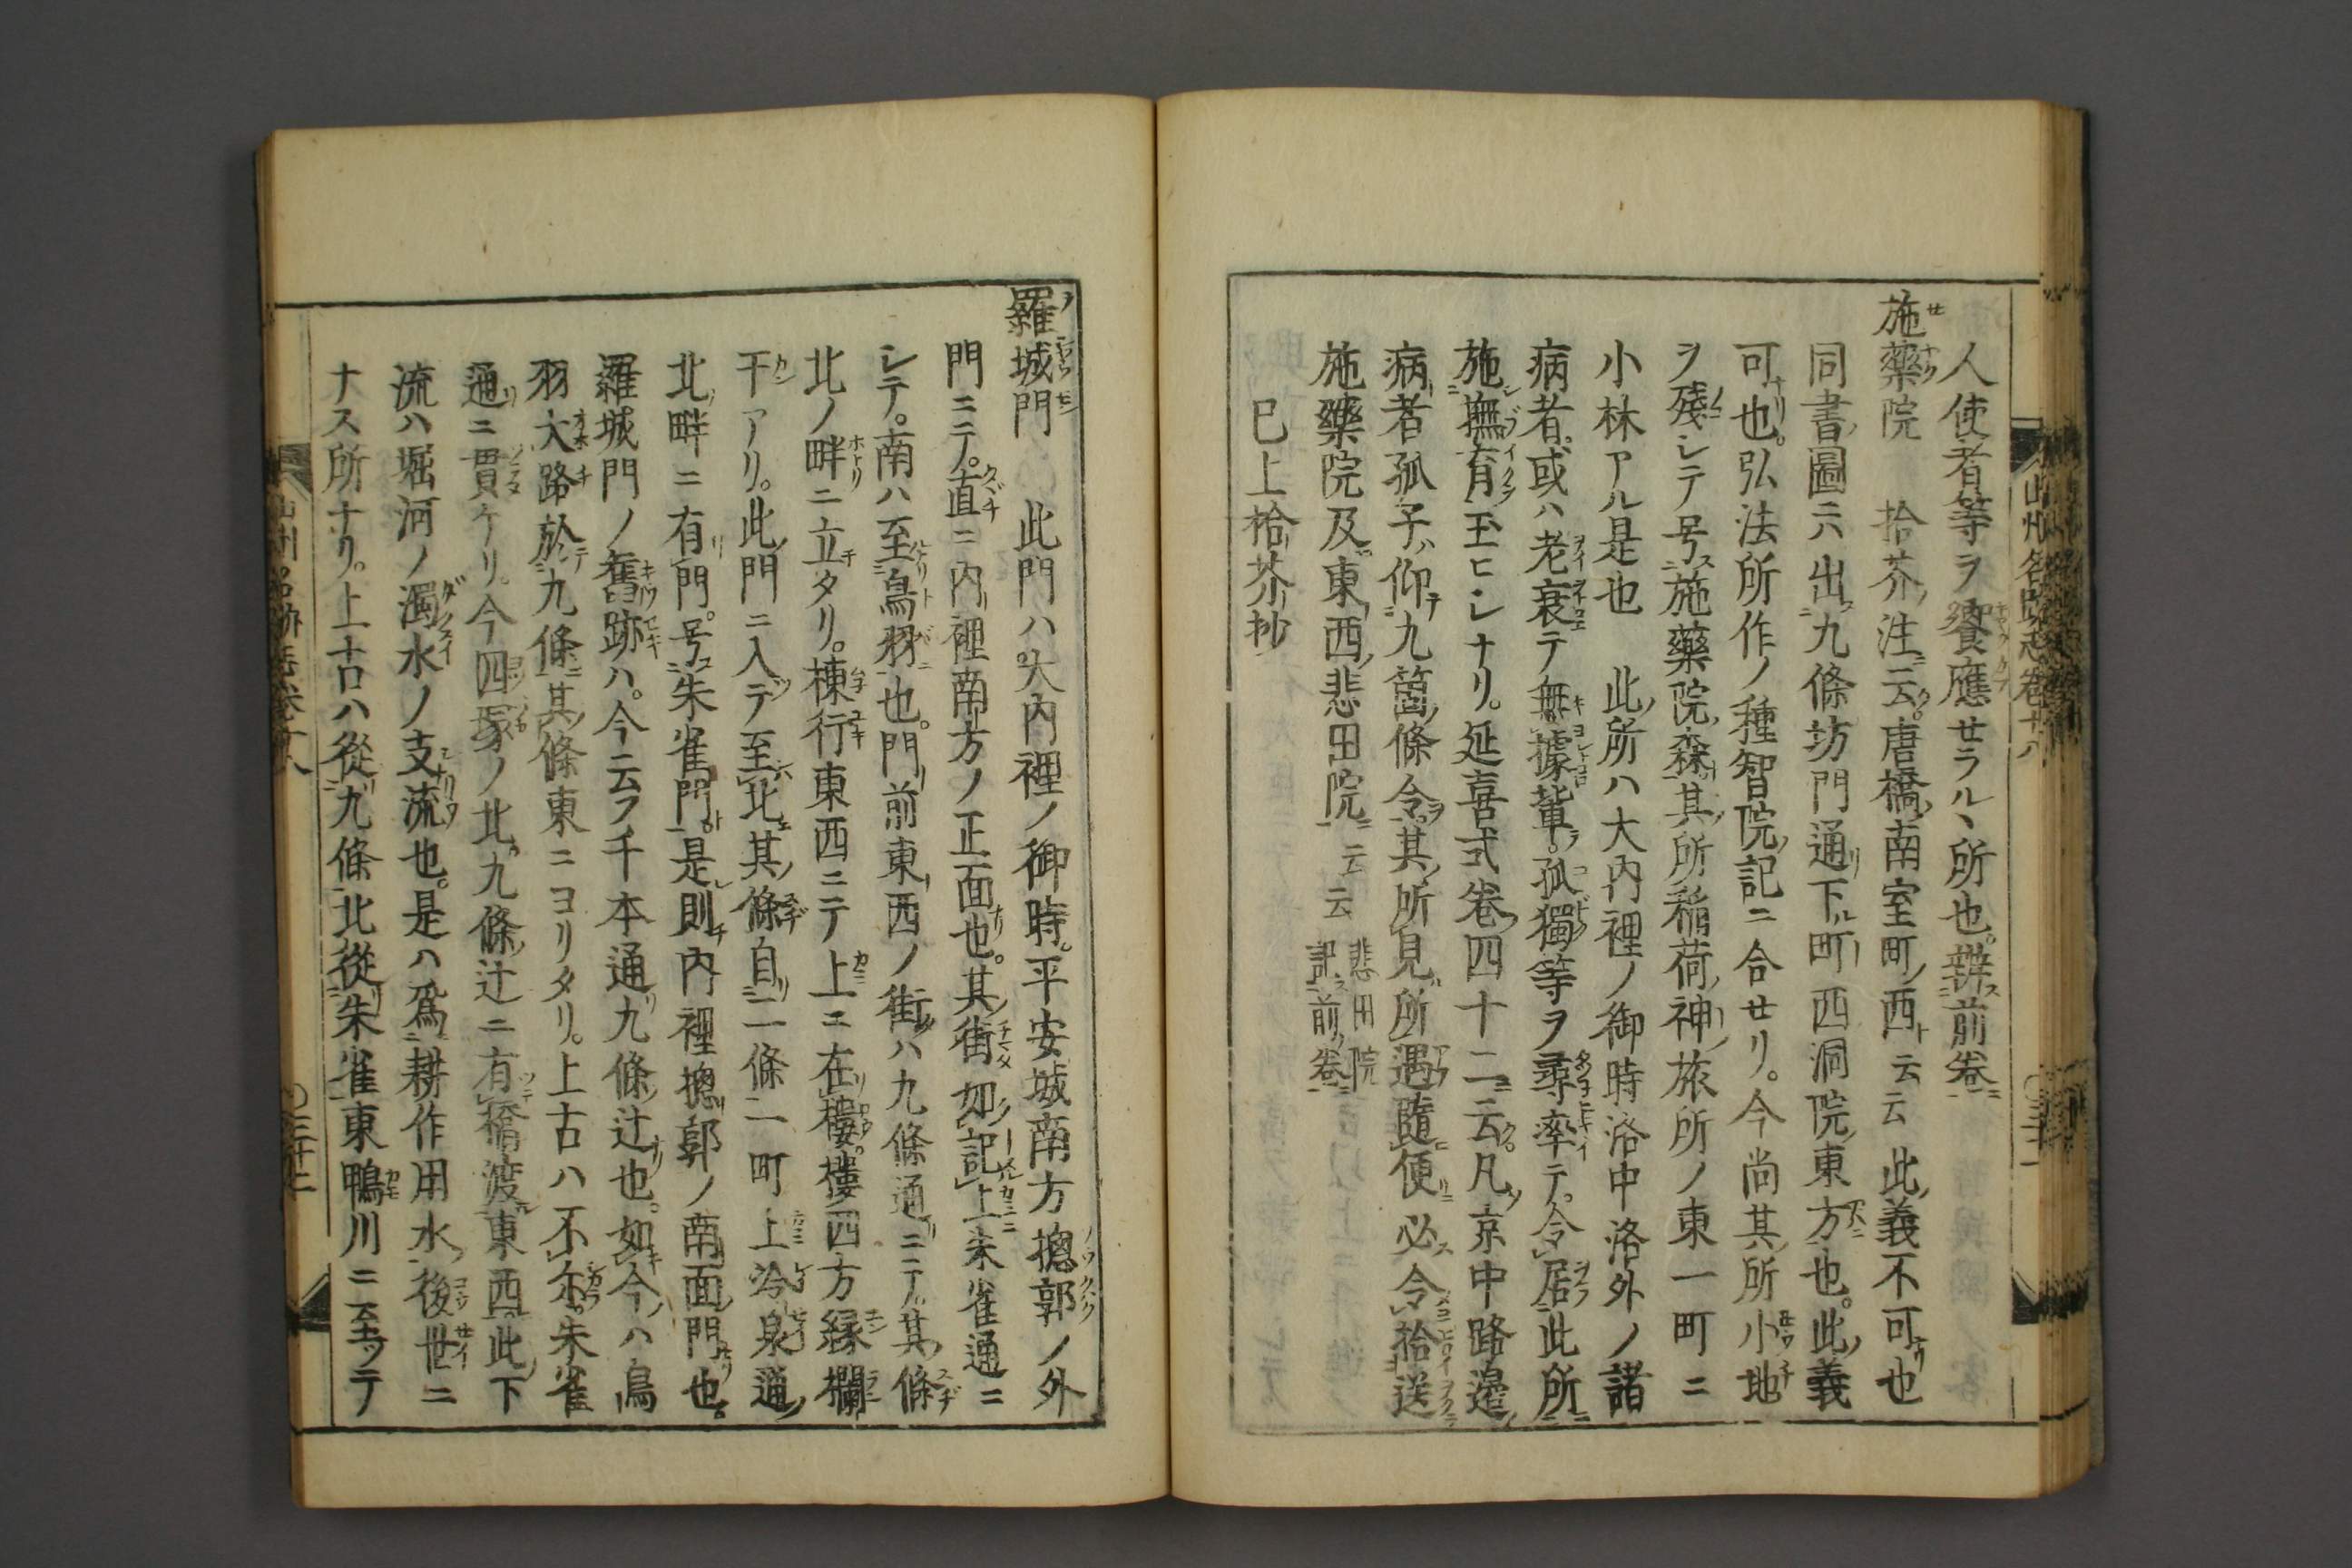 人使者等ヲ饗應セラルヽ所也。辨前卷
施藥院　拾芥注云。唐橋南室町ノ西ト云云　此義不可也
同書圖ニハ出九條坊門通下ル町西洞院東方也。此義
可也。弘法所作ノ種智院記ニ合セリ。今尚其所小地
ヲ殘シテ号施藥院森。其所稲荷神旅所ノ東一町ニ
小林アル是也　此所ハ大内裡ノ御時洛中洛外ノ諸
病者。或ハ老衰テ無據輩。孤獨等ヲ尋率テ。令居此所
施撫育玉ヒシナリ。延喜式卷四十二云。凡京中路邊
病者孤子ハ仰九箇條令。其所見所遇隨便必令拾送
施藥院及東西悲田院云云　悲田院記前卷
已上拾芥抄
羅城門　此門ハ。大内裡ノ御時。平安城南方摠郭ノ外
門ニテ。直ニ内裡南方ノ正面也。其街如記上朱雀通ニ
シテ。南ハ至鳥羽也。門前東西ノ街ハ九條通ニテ。其條
北ノ畔ニ立タリ。棟行東西ニテ上ニ在樓。樓四方縁欄
干アリ。此門ニ入テ至北其條自二條二町上冷泉通ノ
北畔ニ有門。号朱雀門。是則内裡摠郭ノ南面門也。
羅城門ノ舊跡ハ。今云フ千本通九條辻也。如今ハ鳥
羽大路於九條其條東ニヨリタリ。上古ハ不尓。朱雀
通ニ貫ケリ。今四塚ノ北。九條辻ニ有橋渡東西。此下
流ハ堀河ノ濁水ノ支流也。是ハ爲耕作用水後世ニ
ナス所ナリ。上古ハ從九條北從朱雀東鴨川ニ至ッテ
山州名跡志卷廿八